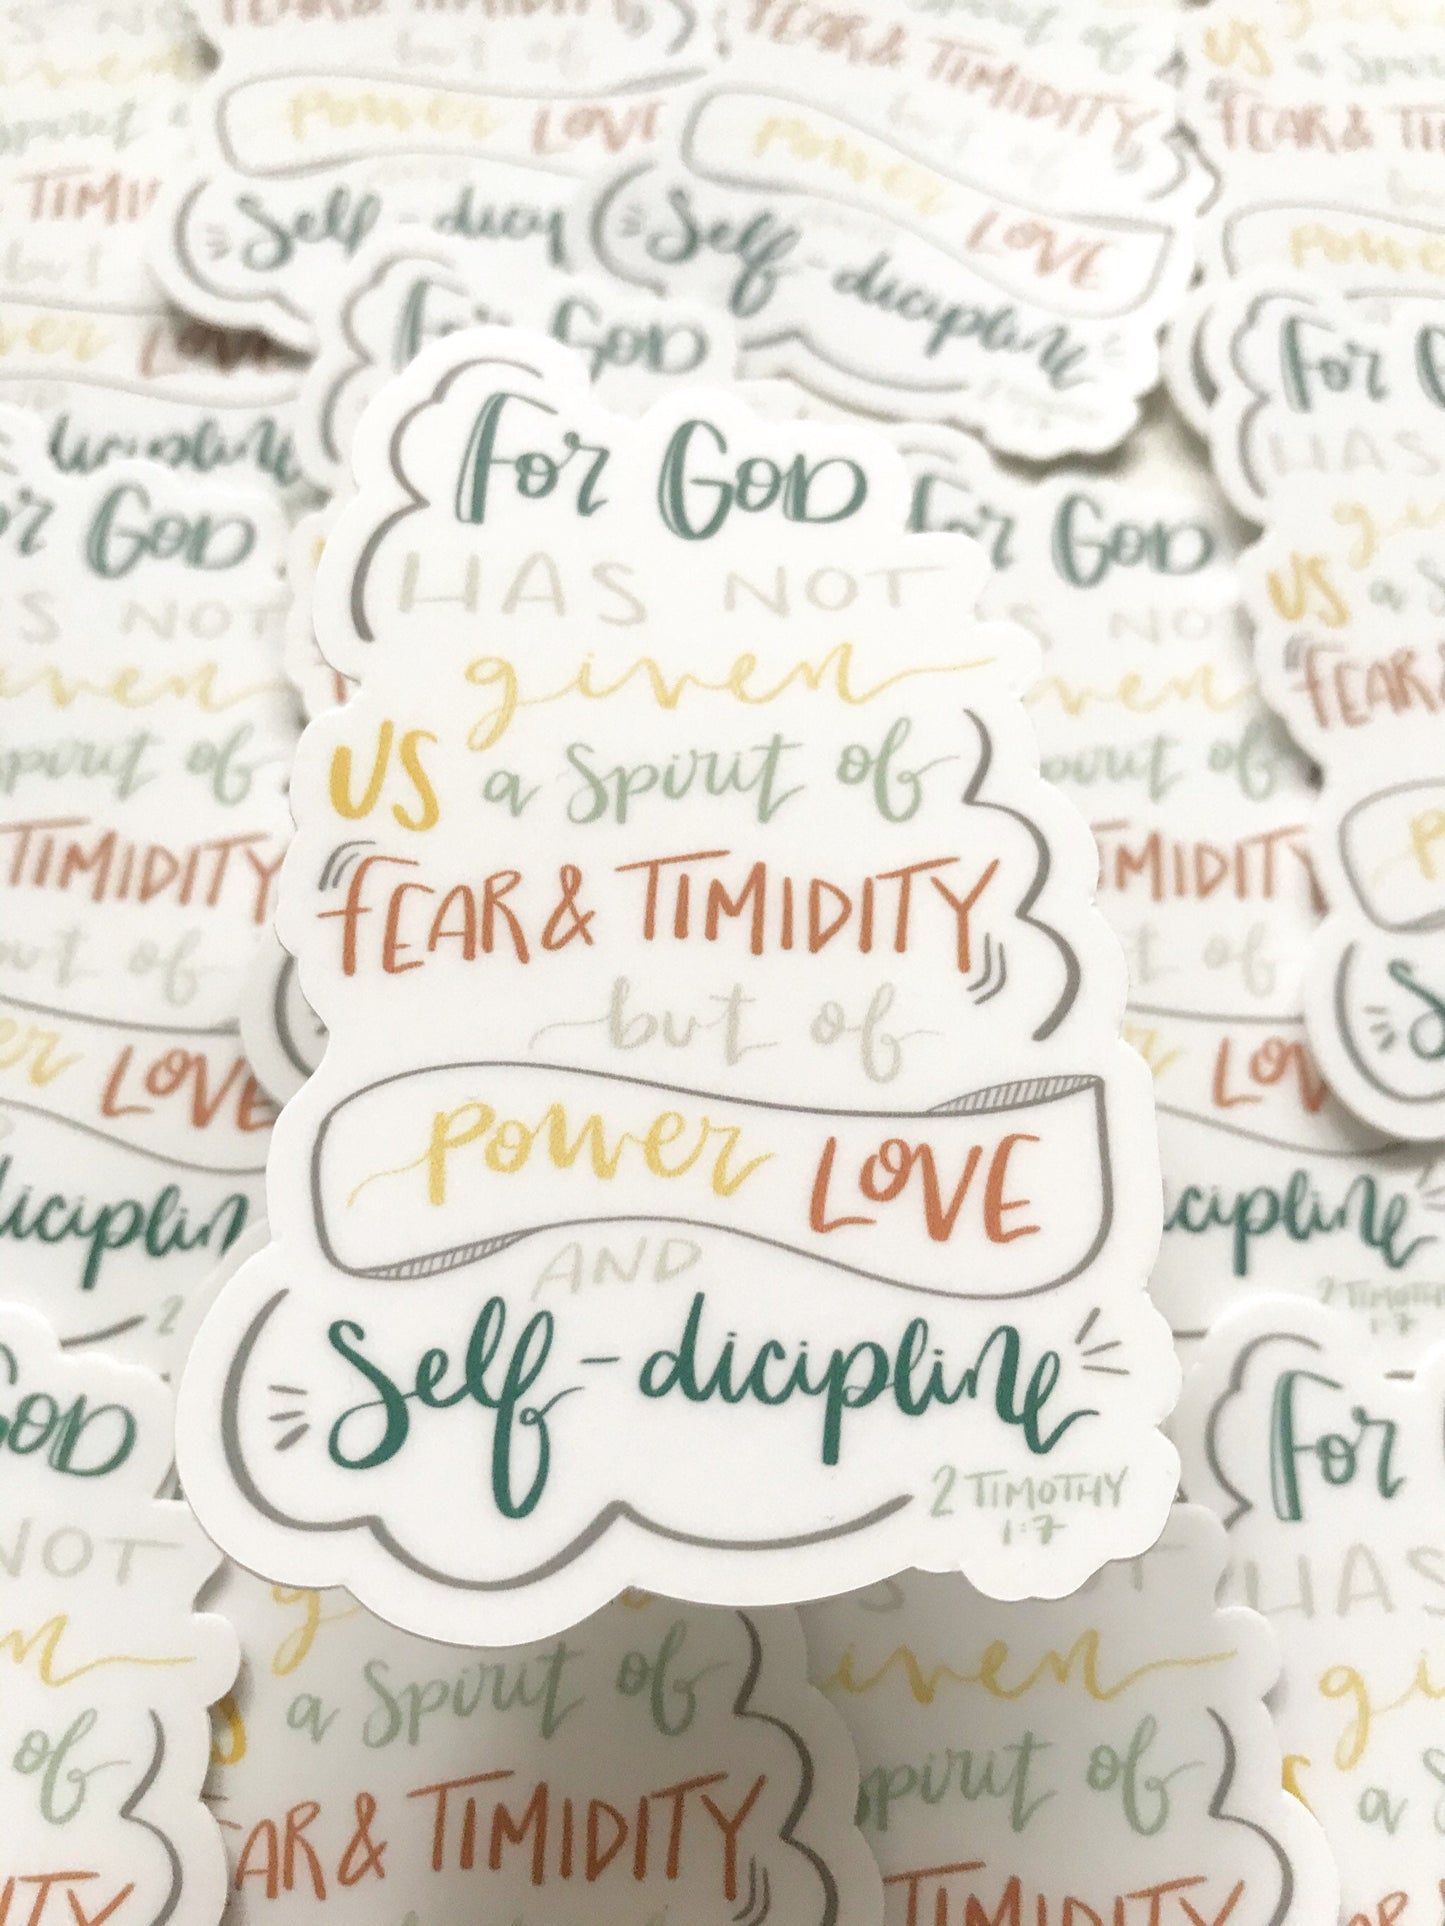 For God
HAS NOT
given
US a Spirit of
FEAR & TIMIDITY
but of
Power LOVE
AND
Self-dicipline
2 TIMOTHY
1:7